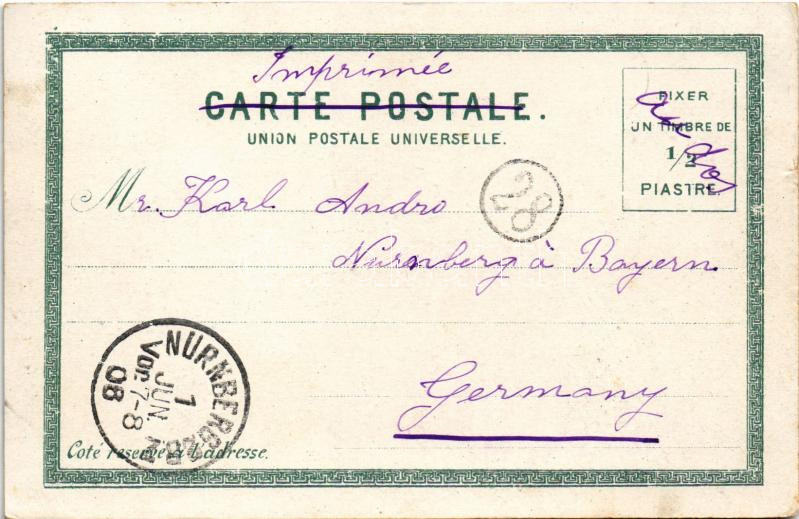 Imprimée
CARTE POSTALE.
UNION POSTALE UNIVERSELLE.
FIXER
UN TIMBRE DE
1/2
PIASTRE.
au dos
28
Mr. Karl Andro
Nürnberg à Bayern
Germany
NÜRNBERG
1
JUN.
Vor. 7-8
08
Cote reservé à l'adresse.